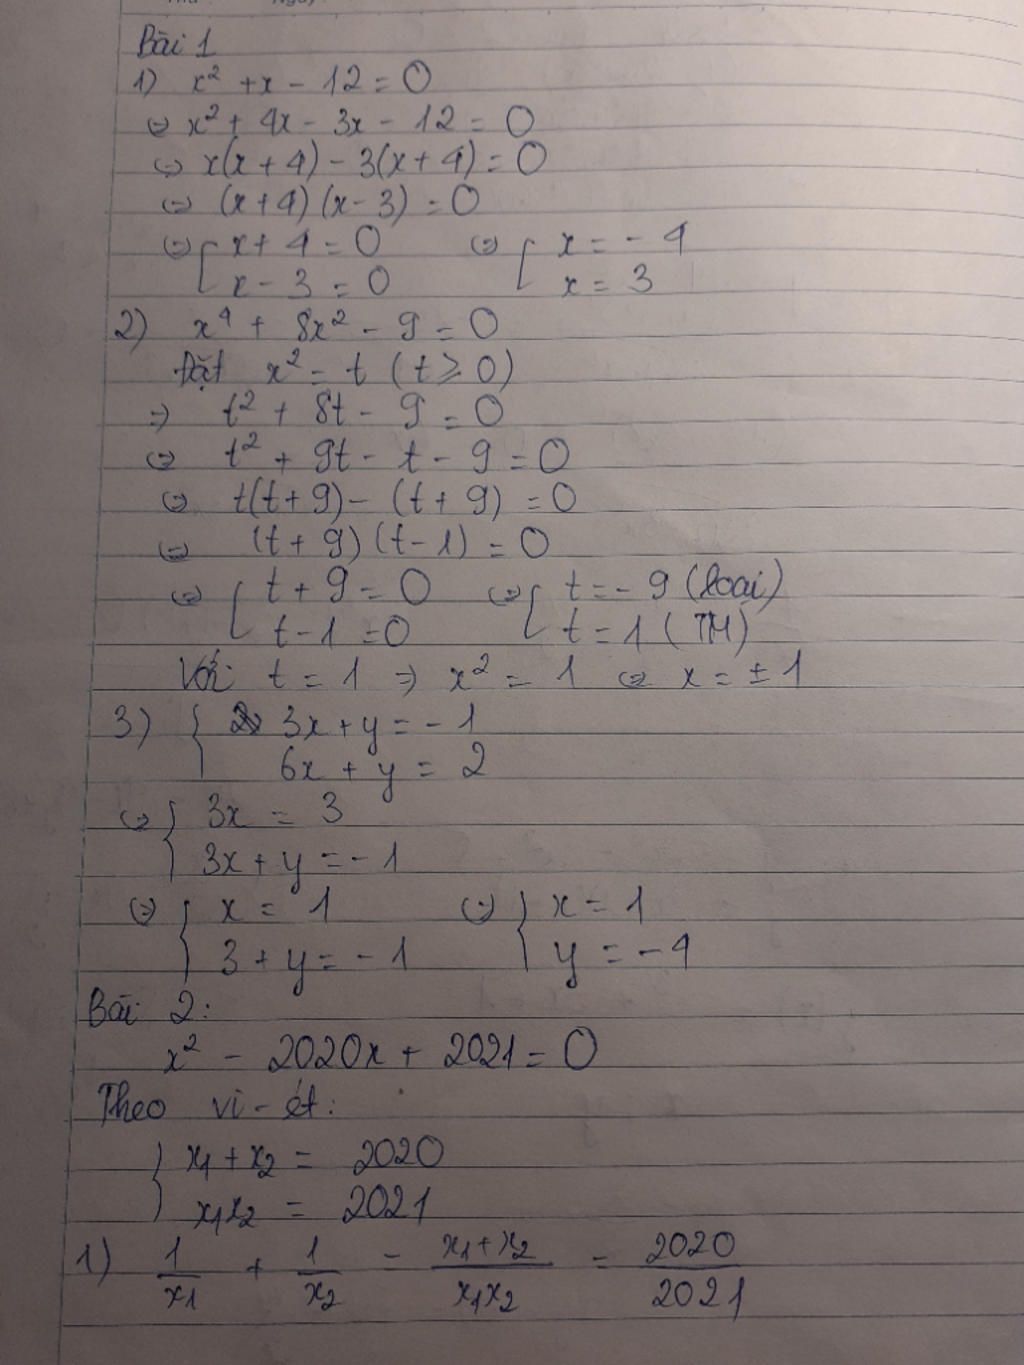 Bài 1
1) x² + x - 12 = 0
⇔ x² + 4x - 3x - 12 = 0
⇔ x(x + 4) - 3(x + 4) = 0
⇔ (x + 4)(x - 3) = 0
⇔ [ x + 4 = 0 ⇔ [ x = - 4
x - 3 = 0 x = 3
2) x⁴ + 8x² - 9 = 0
Đặt x² = t (t ≥ 0)
⇒ t² + 8t - 9 = 0
⇔ t² + 9t - t - 9 = 0
⇔ t(t + 9) - (t + 9) = 0
⇔ (t + 9)(t - 1) = 0
⇔ [ t + 9 = 0 ⇔ [ t = - 9 (loại)
t - 1 = 0 t = 1 (TM)
Với t = 1 ⇒ x² = 1 ⇔ x = ± 1
3) { 3x + y = - 1
6x + y = 2
⇔ { 3x = 3
3x + y = - 1
⇔ { x = 1 ⇔ { x = 1
3 + y = - 1 y = - 4
Bài 2:
x² - 2020x + 2021 = 0
Theo vi-ét:
{ x₁ + x₂ = 2020
x₁x₂ = 2021
1) 1/x₁ + 1/x₂ = (x₁ + x₂)/(x₁x₂) = 2020/2021